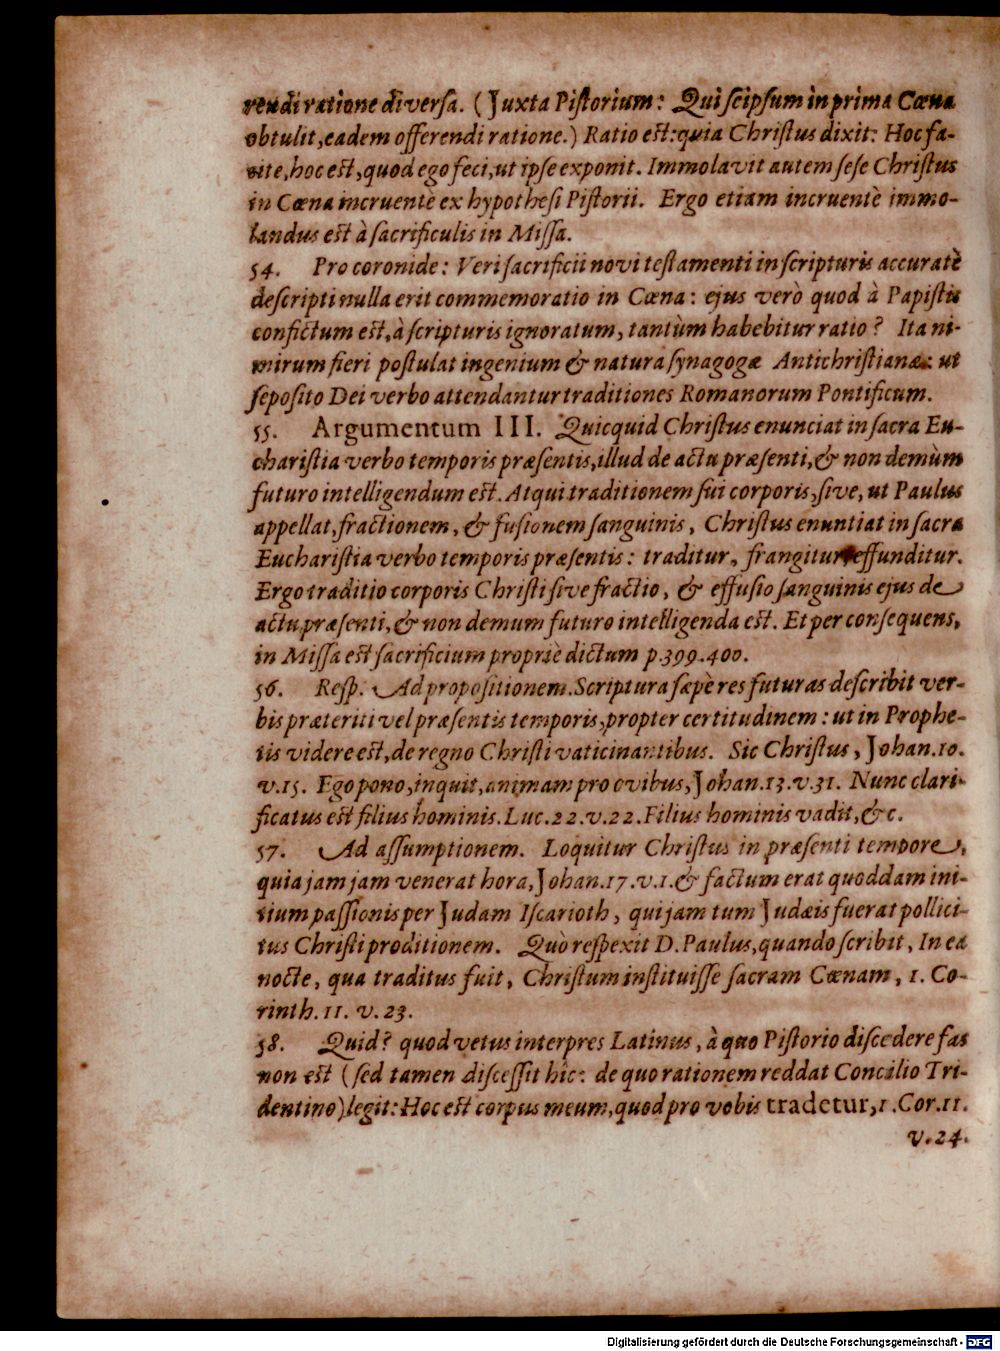 rendi ratione diversa. (Juxta Pistorium: Qui seipsum in prima Cœna
obtulit, eadem offerendi ratione.) Ratio est: quia Christus dixit: Hoc fa-
cite, hoc est, quod ego feci, ut ipse exponit. Immolavit autem sese Christus
in Cœna incruentè ex hypothesi Pistorii. Ergo etiam incruentè immo-
landus est à sacrificulis in Missa.
54. Pro coronide: Veri sacrificii novi testamenti in scripturis accuratè
descripti nulla erit commemoratio in Cœna: ejus verò quod à Papistis
confictum est, à scripturis ignoratum, tantùm habebitur ratio? Ita ni-
mirum fieri postulat ingenium & natura synagogæ Antichristianæ: ut
seposito Dei verbo attendantur traditiones Romanorum Pontificum.
55. Argumentum III. Quicquid Christus enunciat in sacra Eu-
charistia verbo temporis præsentis, illud de actu præsenti, & non demùm
futuro intelligendum est. Atqui traditionem sui corporis, sive, ut Paulus
appellat, fractionem, & fusionem sanguinis, Christus enuntiat in sacra
Eucharistia verbo temporis præsentis: traditur, frangitur, effunditur.
Ergo traditio corporis Christi sive fractio, & effusio sanguinis ejus de
actu præsenti, & non demum futuro intelligenda est. Et per consequens,
in Missa est sacrificium propriè dictum p.399.400.
56. Resp. Ad propositionem. Scriptura sæpè res futuras describit ver-
bis præteriti vel præsentis temporis, propter certitudinem: ut in Prophe-
tis videre est, de regno Christi vaticinantibus. Sic Christus, Johan.10.
v.15. Ego pono, inquit, animam pro ovibus, Johan.13.v.31. Nunc clari-
ficatus est filius hominis. Luc.22.v.22. Filius hominis vadit, &c.
57. Ad assumptionem. Loquitur Christus in præsenti tempore,
quia jam jam venerat hora, Johan.17.v.1. & factum erat quoddam ini-
tium passionis per Judam Iscarioth, qui jam tum Judæis fuerat pollici-
tus Christi proditionem. Quò respexit D. Paulus, quando scribit, In ea
nocte, qua traditus fuit, Christum instituisse sacram Cœnam, 1. Co-
rinth.11. v.23.
58. Quid? quod vetus interpres Latinus, à quo Pistorio discedere fas
non est (sed tamen discessit hîc: de quo rationem reddat Concilio Tri-
dentino) legit: Hoc est corpus meum, quod pro vobis tradetur, 1.Cor.11.
v.24.
Digitalisierung gefördert durch die Deutsche Forschungsgemeinschaft - DFG